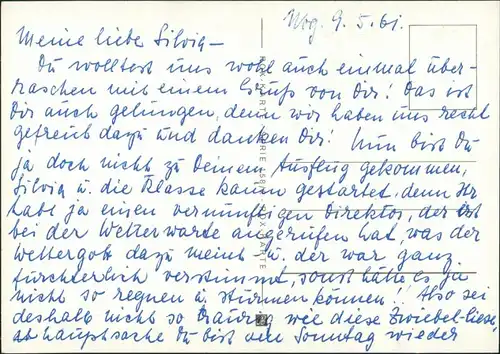 Wbg. 9.5.61.
Meine liebe Silvia –
Du wolltest uns wohl auch einmal über-
raschen mit einem Gruß von Dir! Das ist
Dir auch gelungen, denn wir haben uns recht
gefreut dazu und danken Dir! Nun bist Du
ja doch nicht zu Deinem Ausflug gekommen,
Silvia u. die Klasse kaum gestartet, denn Ihr
habt ja einen vernünftigen Direktor, der erst
bei der Wetterwarte angerufen hat, was der
Wettergott dazu meint – u. der war ganz
fürchterlich verstimmt, sonst hätte es ja
nicht so regnen u. stürmen können!! Also sei
deshalb nicht so traurig wie diese Zwiebel-Liese,
die Hauptsache Du bist am Sonntag wieder